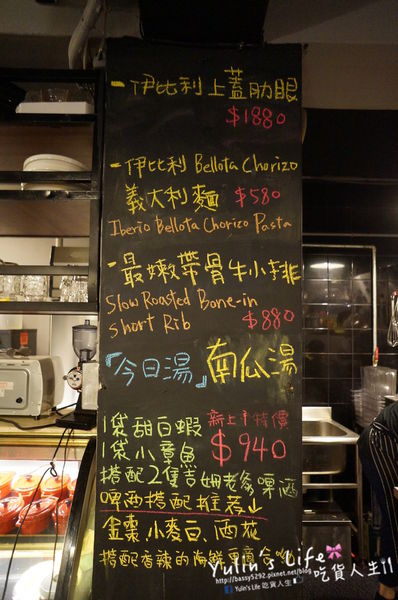 -伊比利上蓋肋眼
$1880
-伊比利 Bellota Chorizo
義大利麵 $580
Iberio Bellota Chorizo Pasta
-最嫩帶骨牛小排
Slow Roasted Bone-in
short Rib $880
『今日湯』南瓜湯
1袋甜白蝦 新上市特價
1袋小章魚 $940
搭配2隻吉姆老爹啤酒
啤酒搭配推荐
金棗、小麥白、西花
搭配香辣的海鮮
Yulin's Life
吃貨人生!!
http://bassy5292.pixnet.net/blog
Yulin's Life 吃貨人生